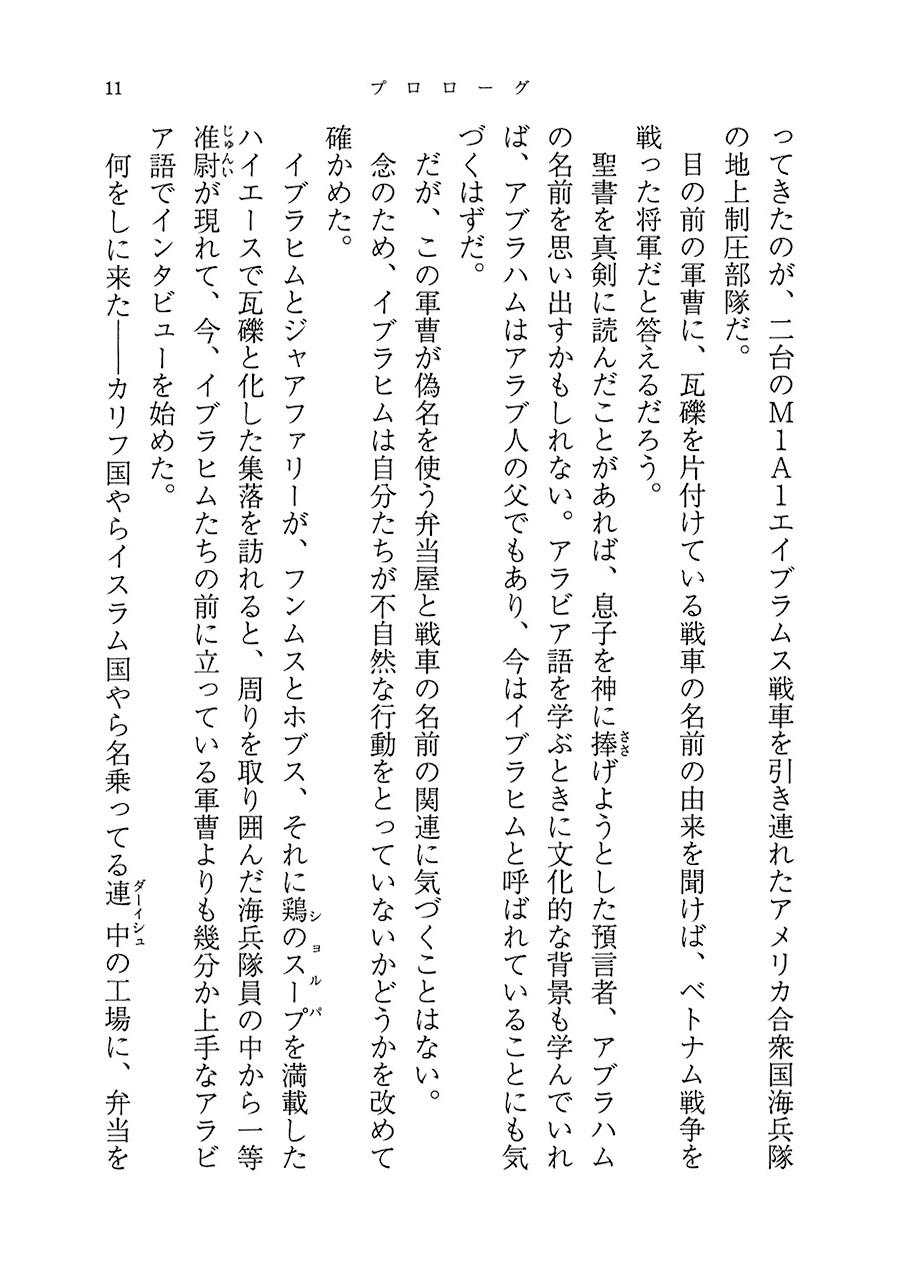 11
プロローグ
ってきたのが、二台のM1A1エイブラムス戦車を引き連れたアメリカ合衆国海兵隊
の地上制圧部隊だ。
目の前の軍曹に、瓦礫を片付けている戦車の名前の由来を聞けば、ベトナム戦争を
戦った将軍だと答えるだろう。
聖書を真剣に読んだことがあれば、息子を神に捧げようとした預言者、アブラハム
の名前を思い出すかもしれない。アラビア語を学ぶときに文化的な背景も学んでいれ
ば、アブラハムはアラブ人の父でもあり、今はイブラヒムと呼ばれていることにも気
づくはずだ。
だが、この軍曹が偽名を使う弁当屋と戦車の名前の関連に気づくことはない。
念のため、イブラヒムは自分たちが不自然な行動をとっていないかどうかを改めて
確かめた。
イブラヒムとジャアファリーが、フンムスとホブス、それに鶏のスープを満載した
ハイエースで瓦礫と化した集落を訪れると、周りを取り囲んだ海兵隊員の中から一等
准尉が現れて、今、イブラヒムたちの前に立っている軍曹よりも幾分か上手なアラビ
ア語でインタビューを始めた。
何をしに来た――カリフ国やらイスラム国やら名乗ってる連中の工場に、弁当を
ささ
ショルバ
じゅんい
ダーイシュ